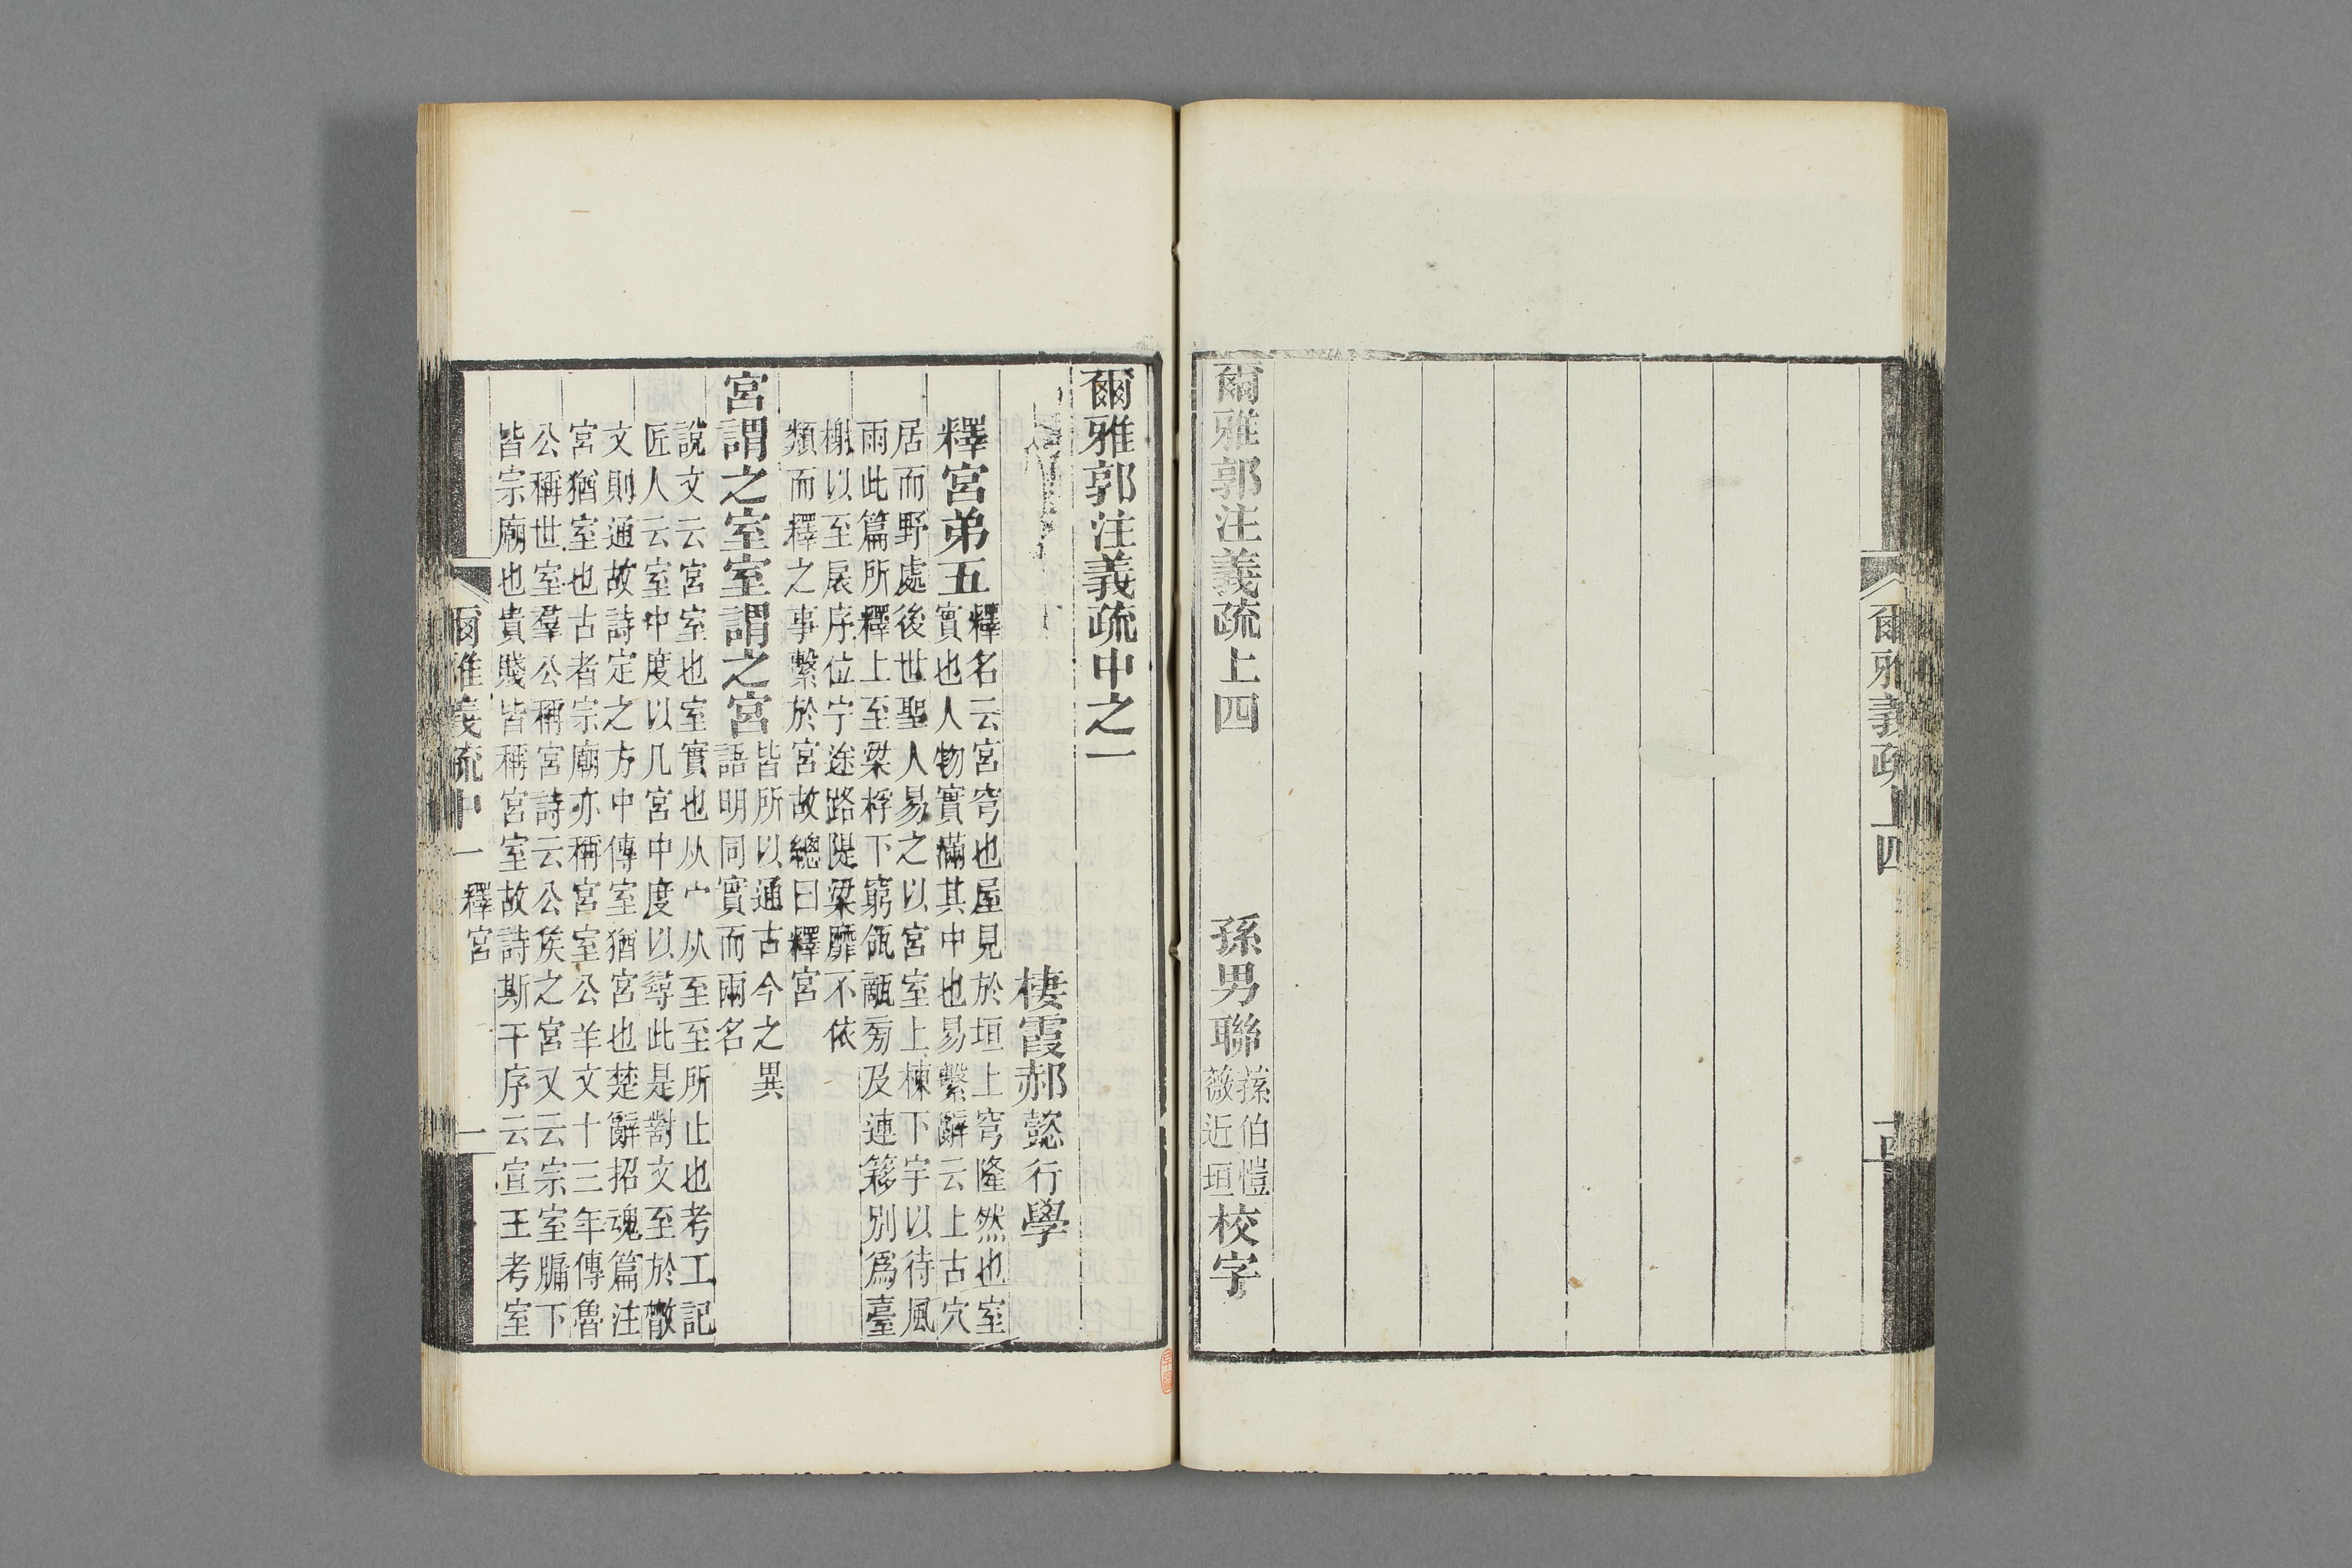 爾雅義疏上四
爾雅郭注義疏上四　孫男聯蓀伯愷薇近垣校字
爾雅郭注義疏中之一
棲霞郝懿行學
釋宮弟五釋名云宮穹也屋見於垣上穹隆然也室
實也人物實滿其中也易繫辭云上古穴
居而野處後世聖人易之以宮室上棟下宇以待風
雨此篇所釋上至梁桴下窮瓴甋旁及連簃別爲臺
榭以至扆序位宁途路隄梁靡不依
類而釋之事繫於宮故總曰釋宮
宮謂之室室謂之宮皆所以通古今之異
語明同實而兩名
說文云宮室也室實也从宀从至至所止也考工記
匠人云室中度以几宮中度以尋此是對文至於散
文則通故詩定之方中傳室猶宮也楚辭招魂篇注
宮猶室也古者宗廟亦稱宮室公羊文十三年傳魯
公稱世室羣公稱宮詩云公侯之宮又云宗室牖下
皆宗廟也貴賤皆稱宮室故詩斯干序云宣王考室
爾雅義疏中一　釋宮　一